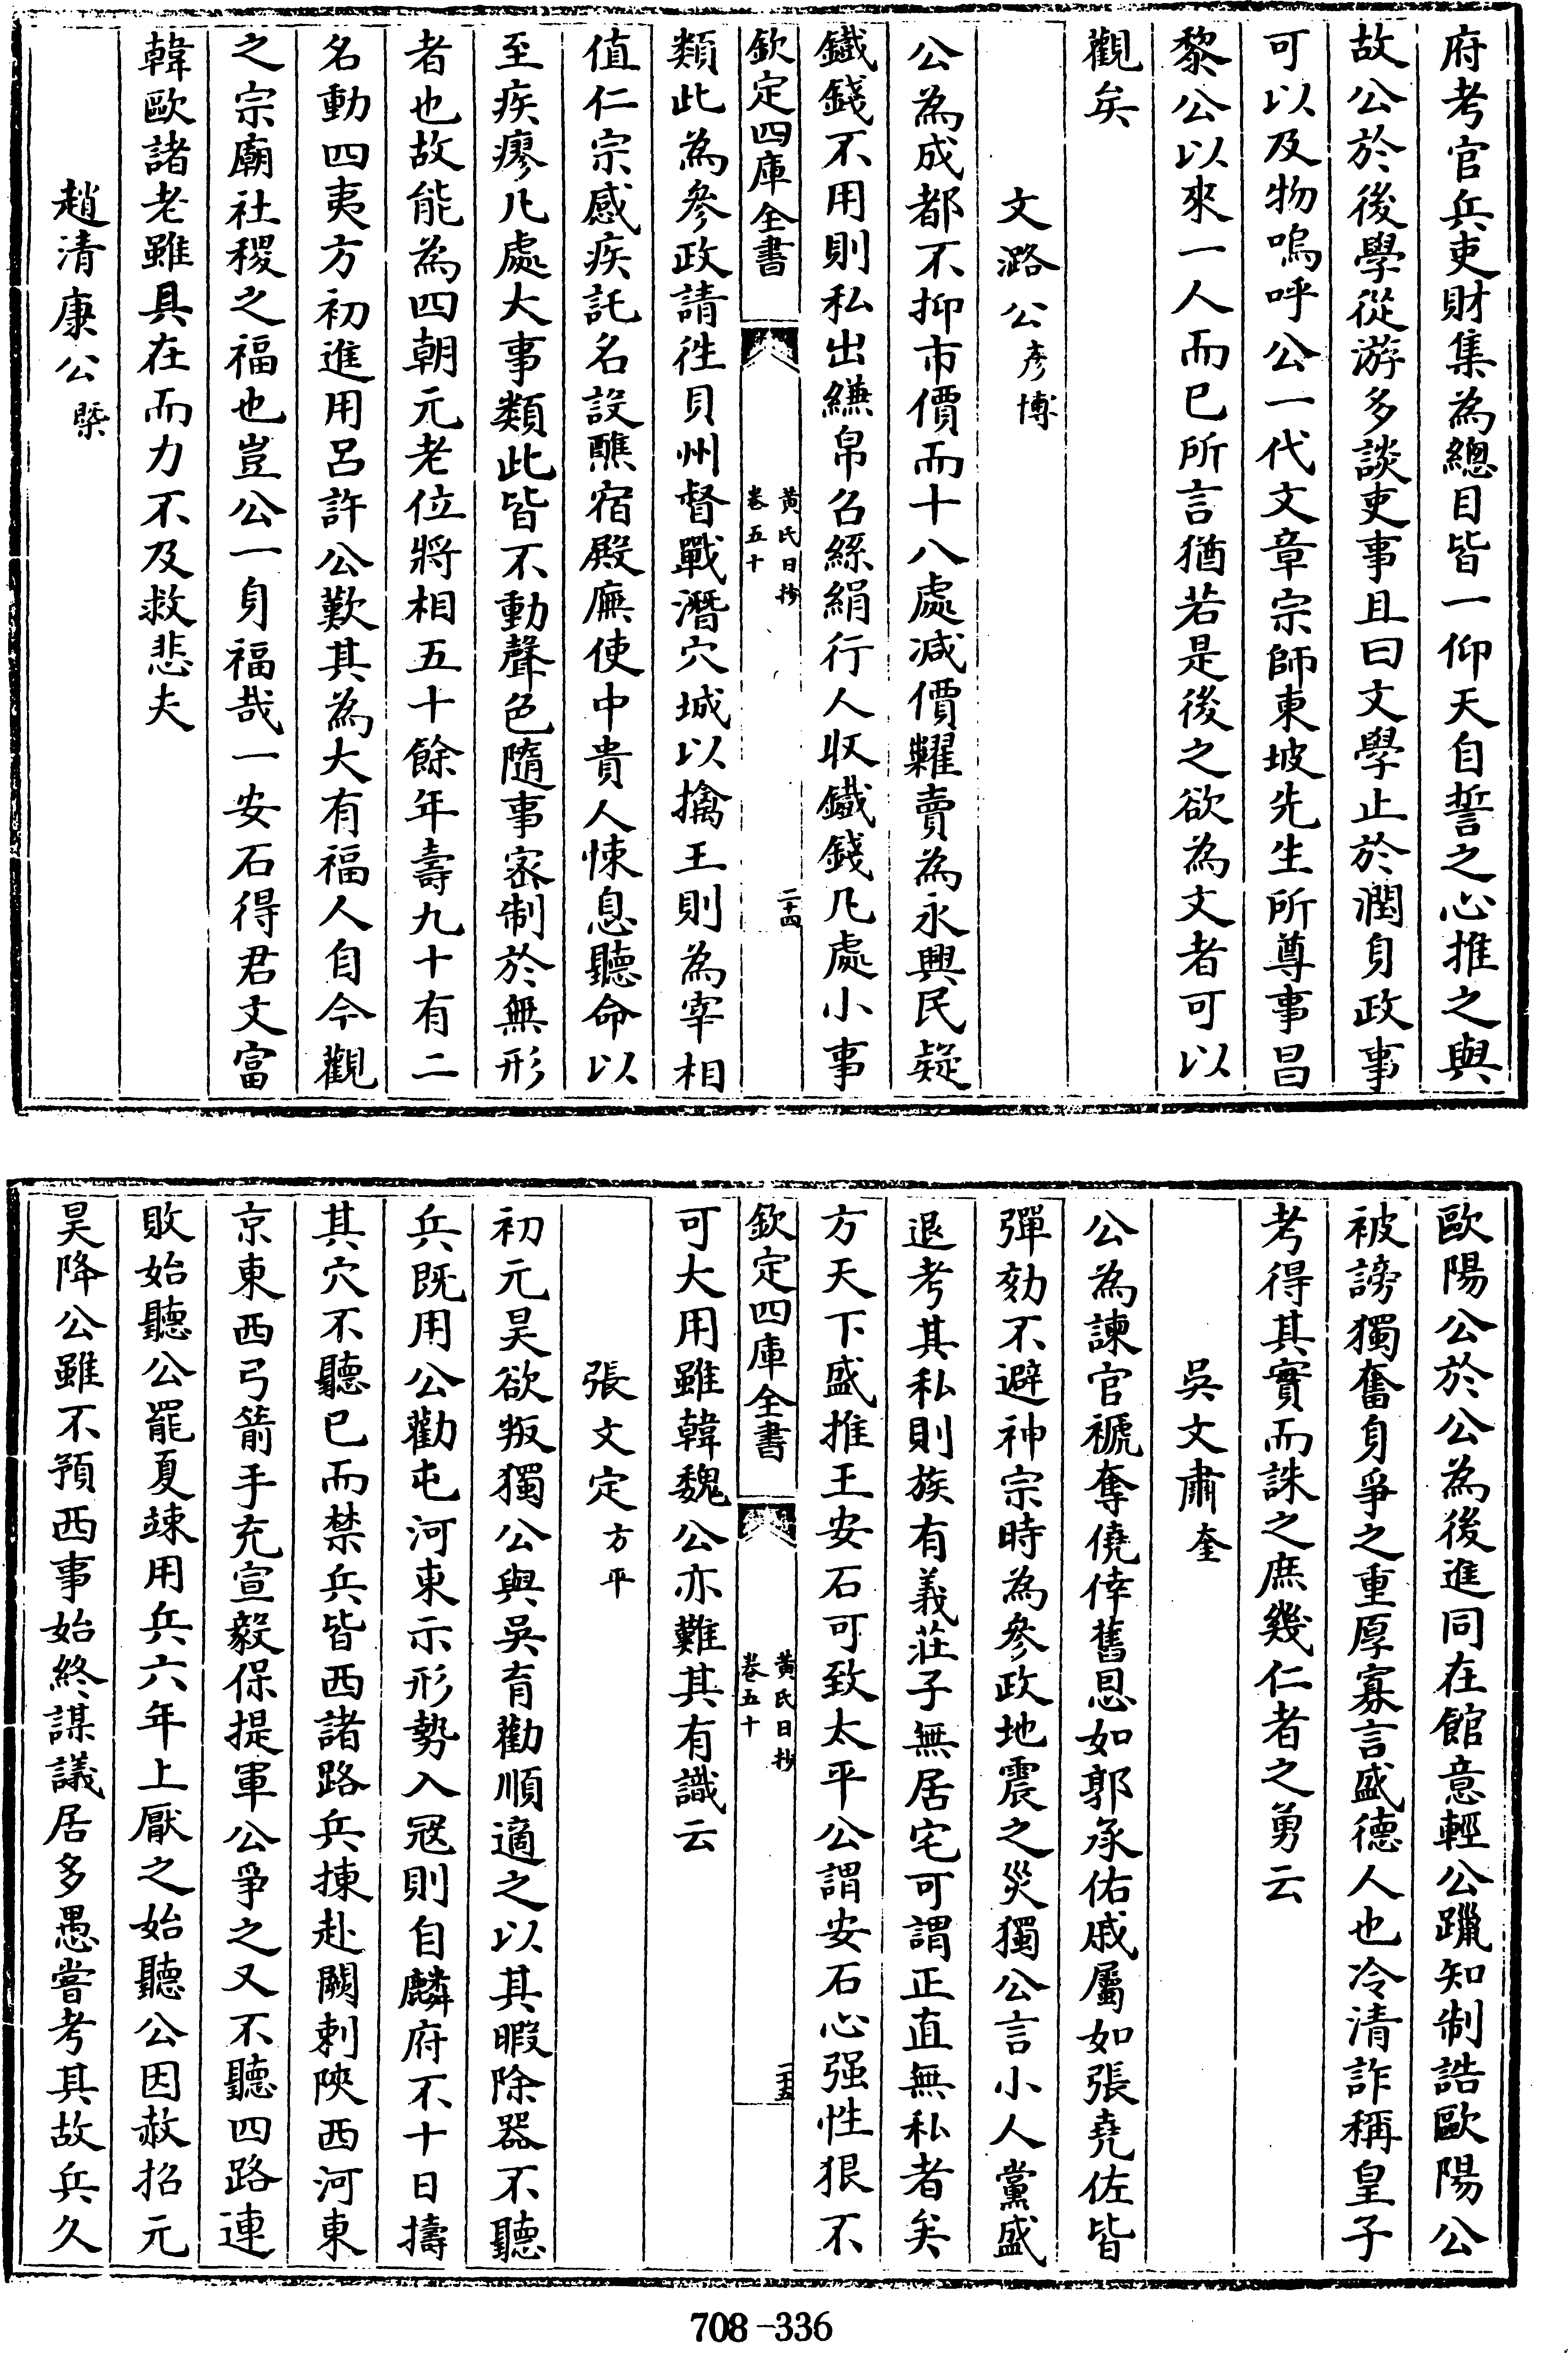 府考官兵吏財集為總目皆一仰天自誓之心推之與
故公於後學從游多談吏事且曰文學止於潤身政事
可以及物嗚呼公一代文章宗師東坡先生所尊事昌
黎公以來一人而已所言猶若是後之欲為文者可以
觀矣
文潞公彥博
公為成都不抑市價而十八處减價糶賣為永興民疑
鐵錢不用則私出縑帛召絲絹行人収鐵錢凡處小事
欽定四庫全書
黃氏日抄
卷五十
二十四
類此為參政請徃貝州督戰潛穴城以擒王則為宰相
值仁宗感疾託名設醮宿殿廡使中貴人悚息聽命以
至疾瘳凡處大事類此皆不動聲色隨事宻制於無形
者也故能為四朝元老位將相五十餘年壽九十有二
名動四夷方初進用呂許公歎其為大有福人自今觀
之宗廟社稷之福也豈公一身福哉一安石得君文富
韓歐諸老雖具在而力不及救悲夫
趙清康公槩
歐陽公於公為後進同在館意輕公躐知制誥歐陽公
被謗獨奮身爭之重厚寡言盛德人也冷清詐稱皇子
考得其實而誅之庶幾仁者之勇云
吳文肅奎
公為諫官褫奪僥倖舊恩如郭承佑戚屬如張堯佐皆
彈劾不避神宗時為參政地震之災獨公言小人黨盛
退考其私則族有義莊子無居宅可謂正直無私者矣
方天下盛推王安石可致太平公謂安石心强性狠不
欽定四庫全書
黃氏日抄
卷五十
二十五
可大用雖韓魏公亦難其有識云
張文定方平
初元昊欲叛獨公與吳育勸順適之以其暇除器不聽
兵既用公勸屯河東示形勢入冦則自麟府不十日擣
其穴不聽已而禁兵皆西諸路兵揀赴闕刺陜西河東
京東西弓箭手充宣毅保捷軍公爭之又不聽四路連
敗始聽公罷夏竦用兵六年上厭之始聽公因赦招元
昊降公雖不預西事始終謀議居多愚嘗考其故兵久
708-336